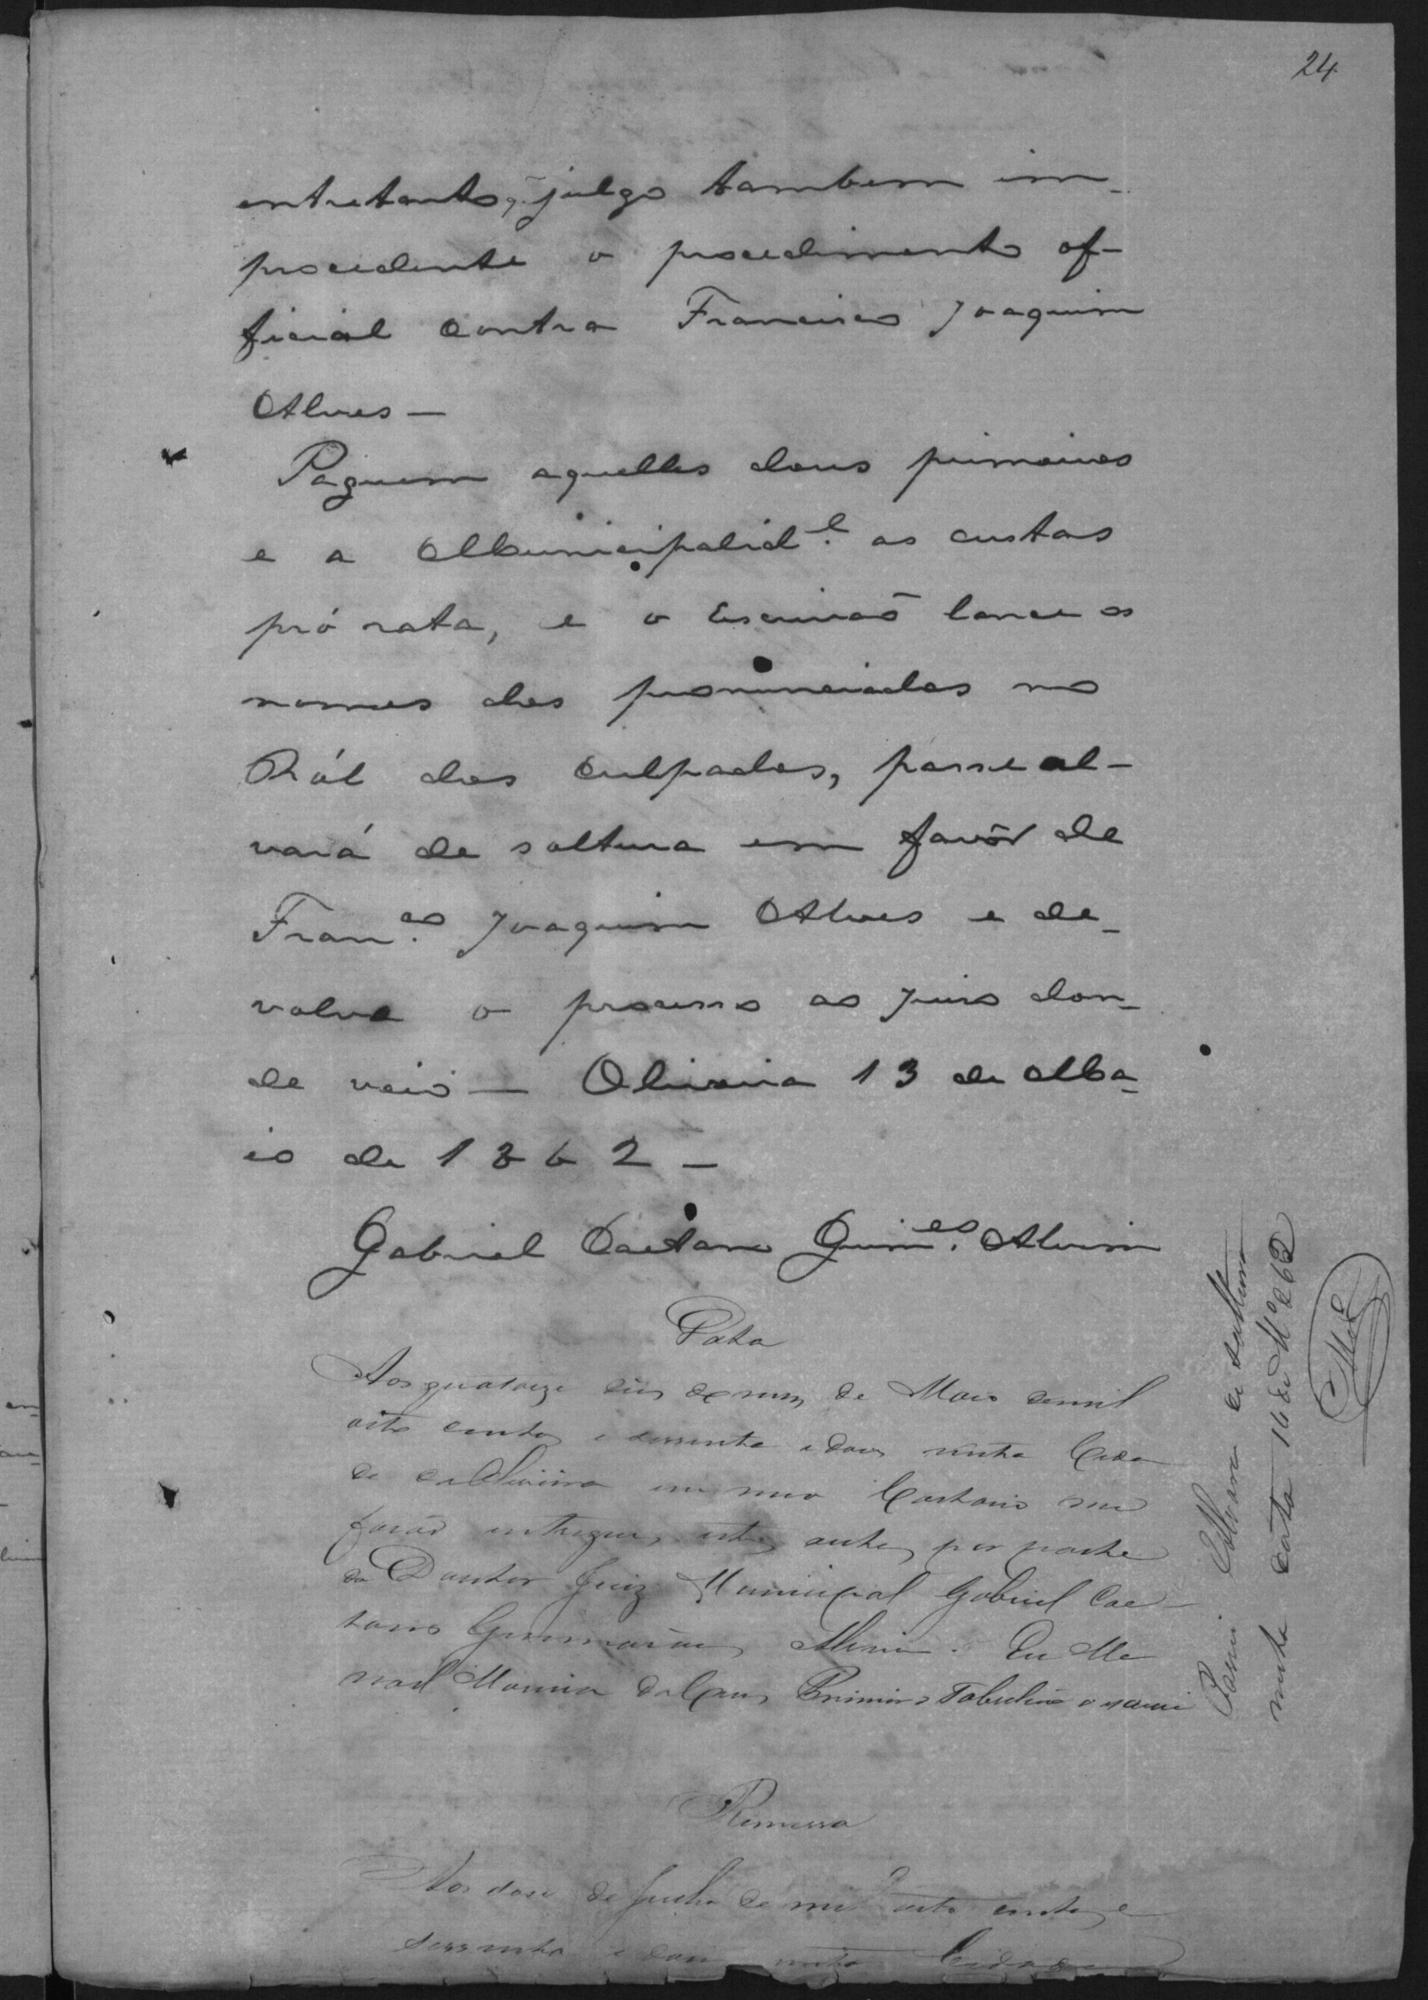 24
entretanto, julgo tambem im-
procedente o procedimento of-
ficial contra Francisco Joaquim
Alves —
Paguem aquelles dous primeiros
e a Municipalid.e as custas
pró rata, e o Escrivaõ lance os
nomes dos pronunciados no
Ról dos Culpados, passe al-
vará de soltura em favôr de
Fran.co Joaquim Alves e de-
volva o processo ao Juiso don-
de veio — Oliveira 13 de Ma-
io de 1862 —
Gabriel Caetano Guim.es Alvim
Data
Aos quatorze dias do mes de Maio de mil
oito centos e sessenta e dous nesta Cida
de da Oliveira em meo Cartorio me
foraõ entregues estes autos por parte
do Doutor Juiz Municipal Gabriel Cae-
tano Guimarães Alvim. Eu Ma
noel Primeiro Tabelião o escrevi
Passei Alvará de soltura
nesta data 14 de M.o 862
Remessa
Aos dose de Junho de mil oito centos e
sessenta e dous nesta Cidade